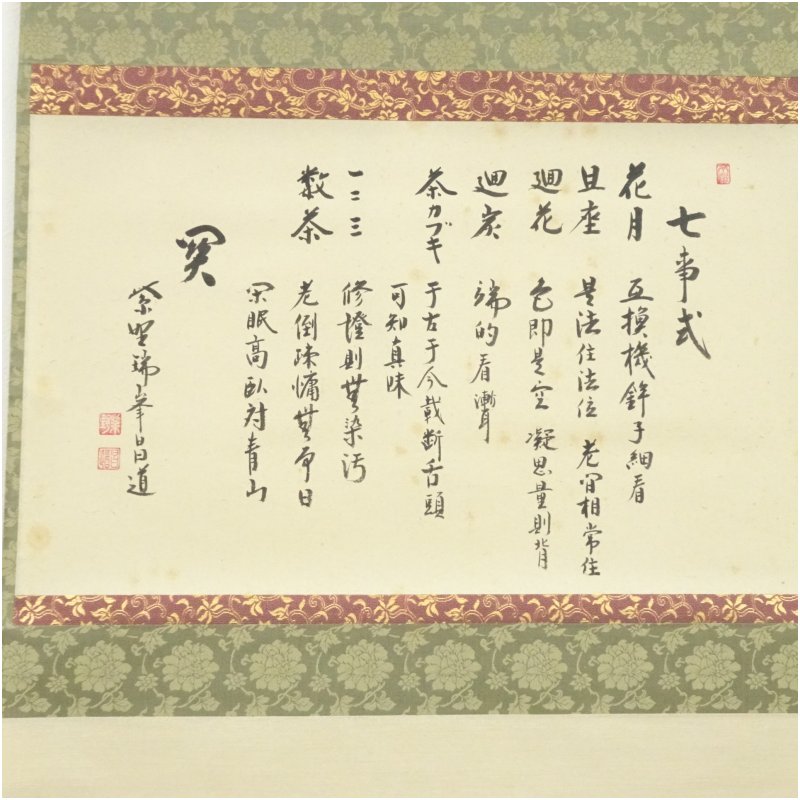 七事式
花月 互換機鋒子細看
且座 是法住法位 世間相常住
廻花 色即是空 凝思量則背
廻炭 端的看聻
茶カブキ 于古于今截断舌頭
可知真味
一二三 修證則無染汚
数茶 老倒疎慵無事日
閑眠高臥対青山
関
紫野瑞峯昌道